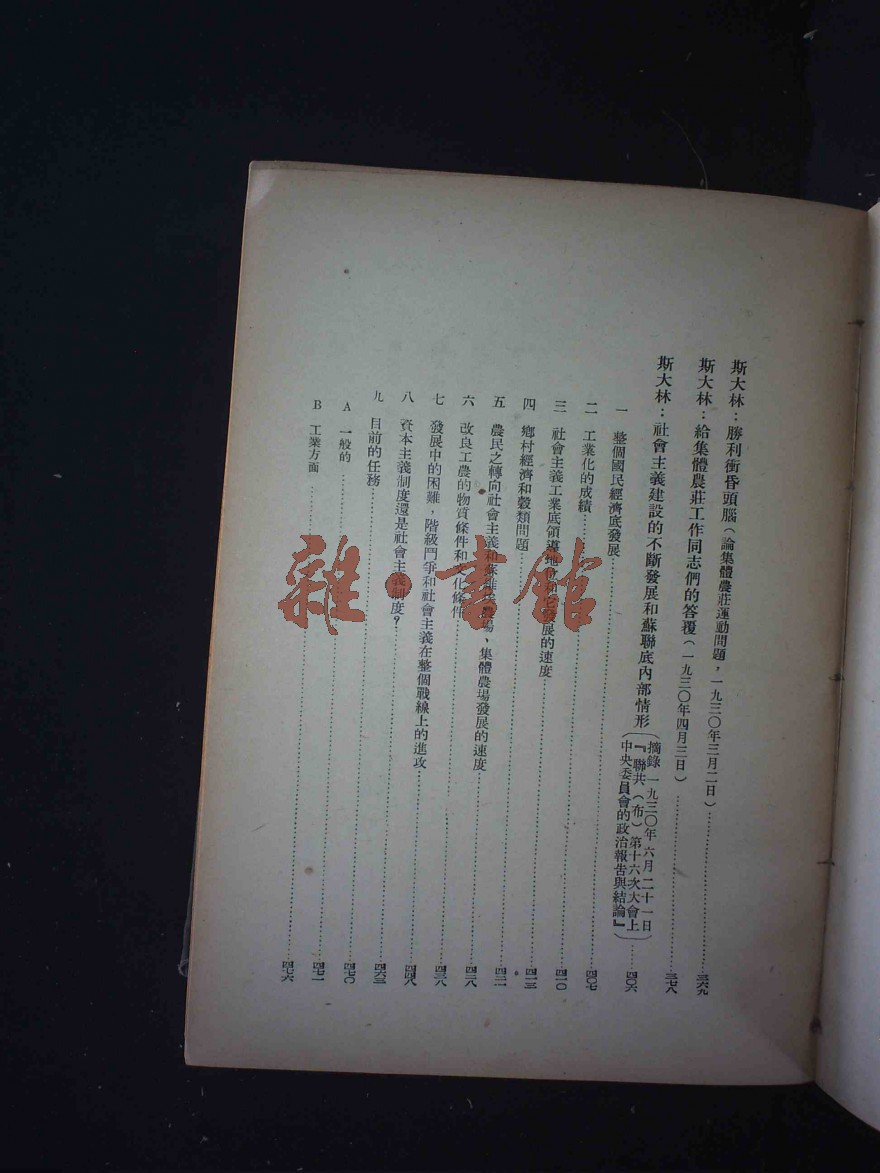 斯大林：勝利衝昏頭腦（論集體農莊運動問題，一九三〇年三月二日）……三六九
斯大林：給集體農莊工作同志們的答覆（一九三〇年四月三日）……三七八
斯大林：社會主義建設的不斷發展和蘇聯底內部情形（摘錄一九三〇年六月二十一日『聯共（布）第十六次大會上中央委員會的政治報告與結論』）……四〇六
一 整個國民經濟底發展……四〇七
二 工業化的成績……四一〇
三 社會主義工業底領導地位和它發展的速度……四一三
四 鄉村經濟和穀類問題……四二一
五 農民之轉向社會主義和蘇維埃農場、集體農場發展的速度……四二八
六 改良工農的物質條件和文化條件……四三八
七 發展中的困難，階級鬥爭和社會主義在整個戰線上的進攻……四四八
八 資本主義制度還是社會主義制度？……四六三
九 目前的任務……四七〇
A 一般的……四七一
B 工業方面……四七六
雜·書館